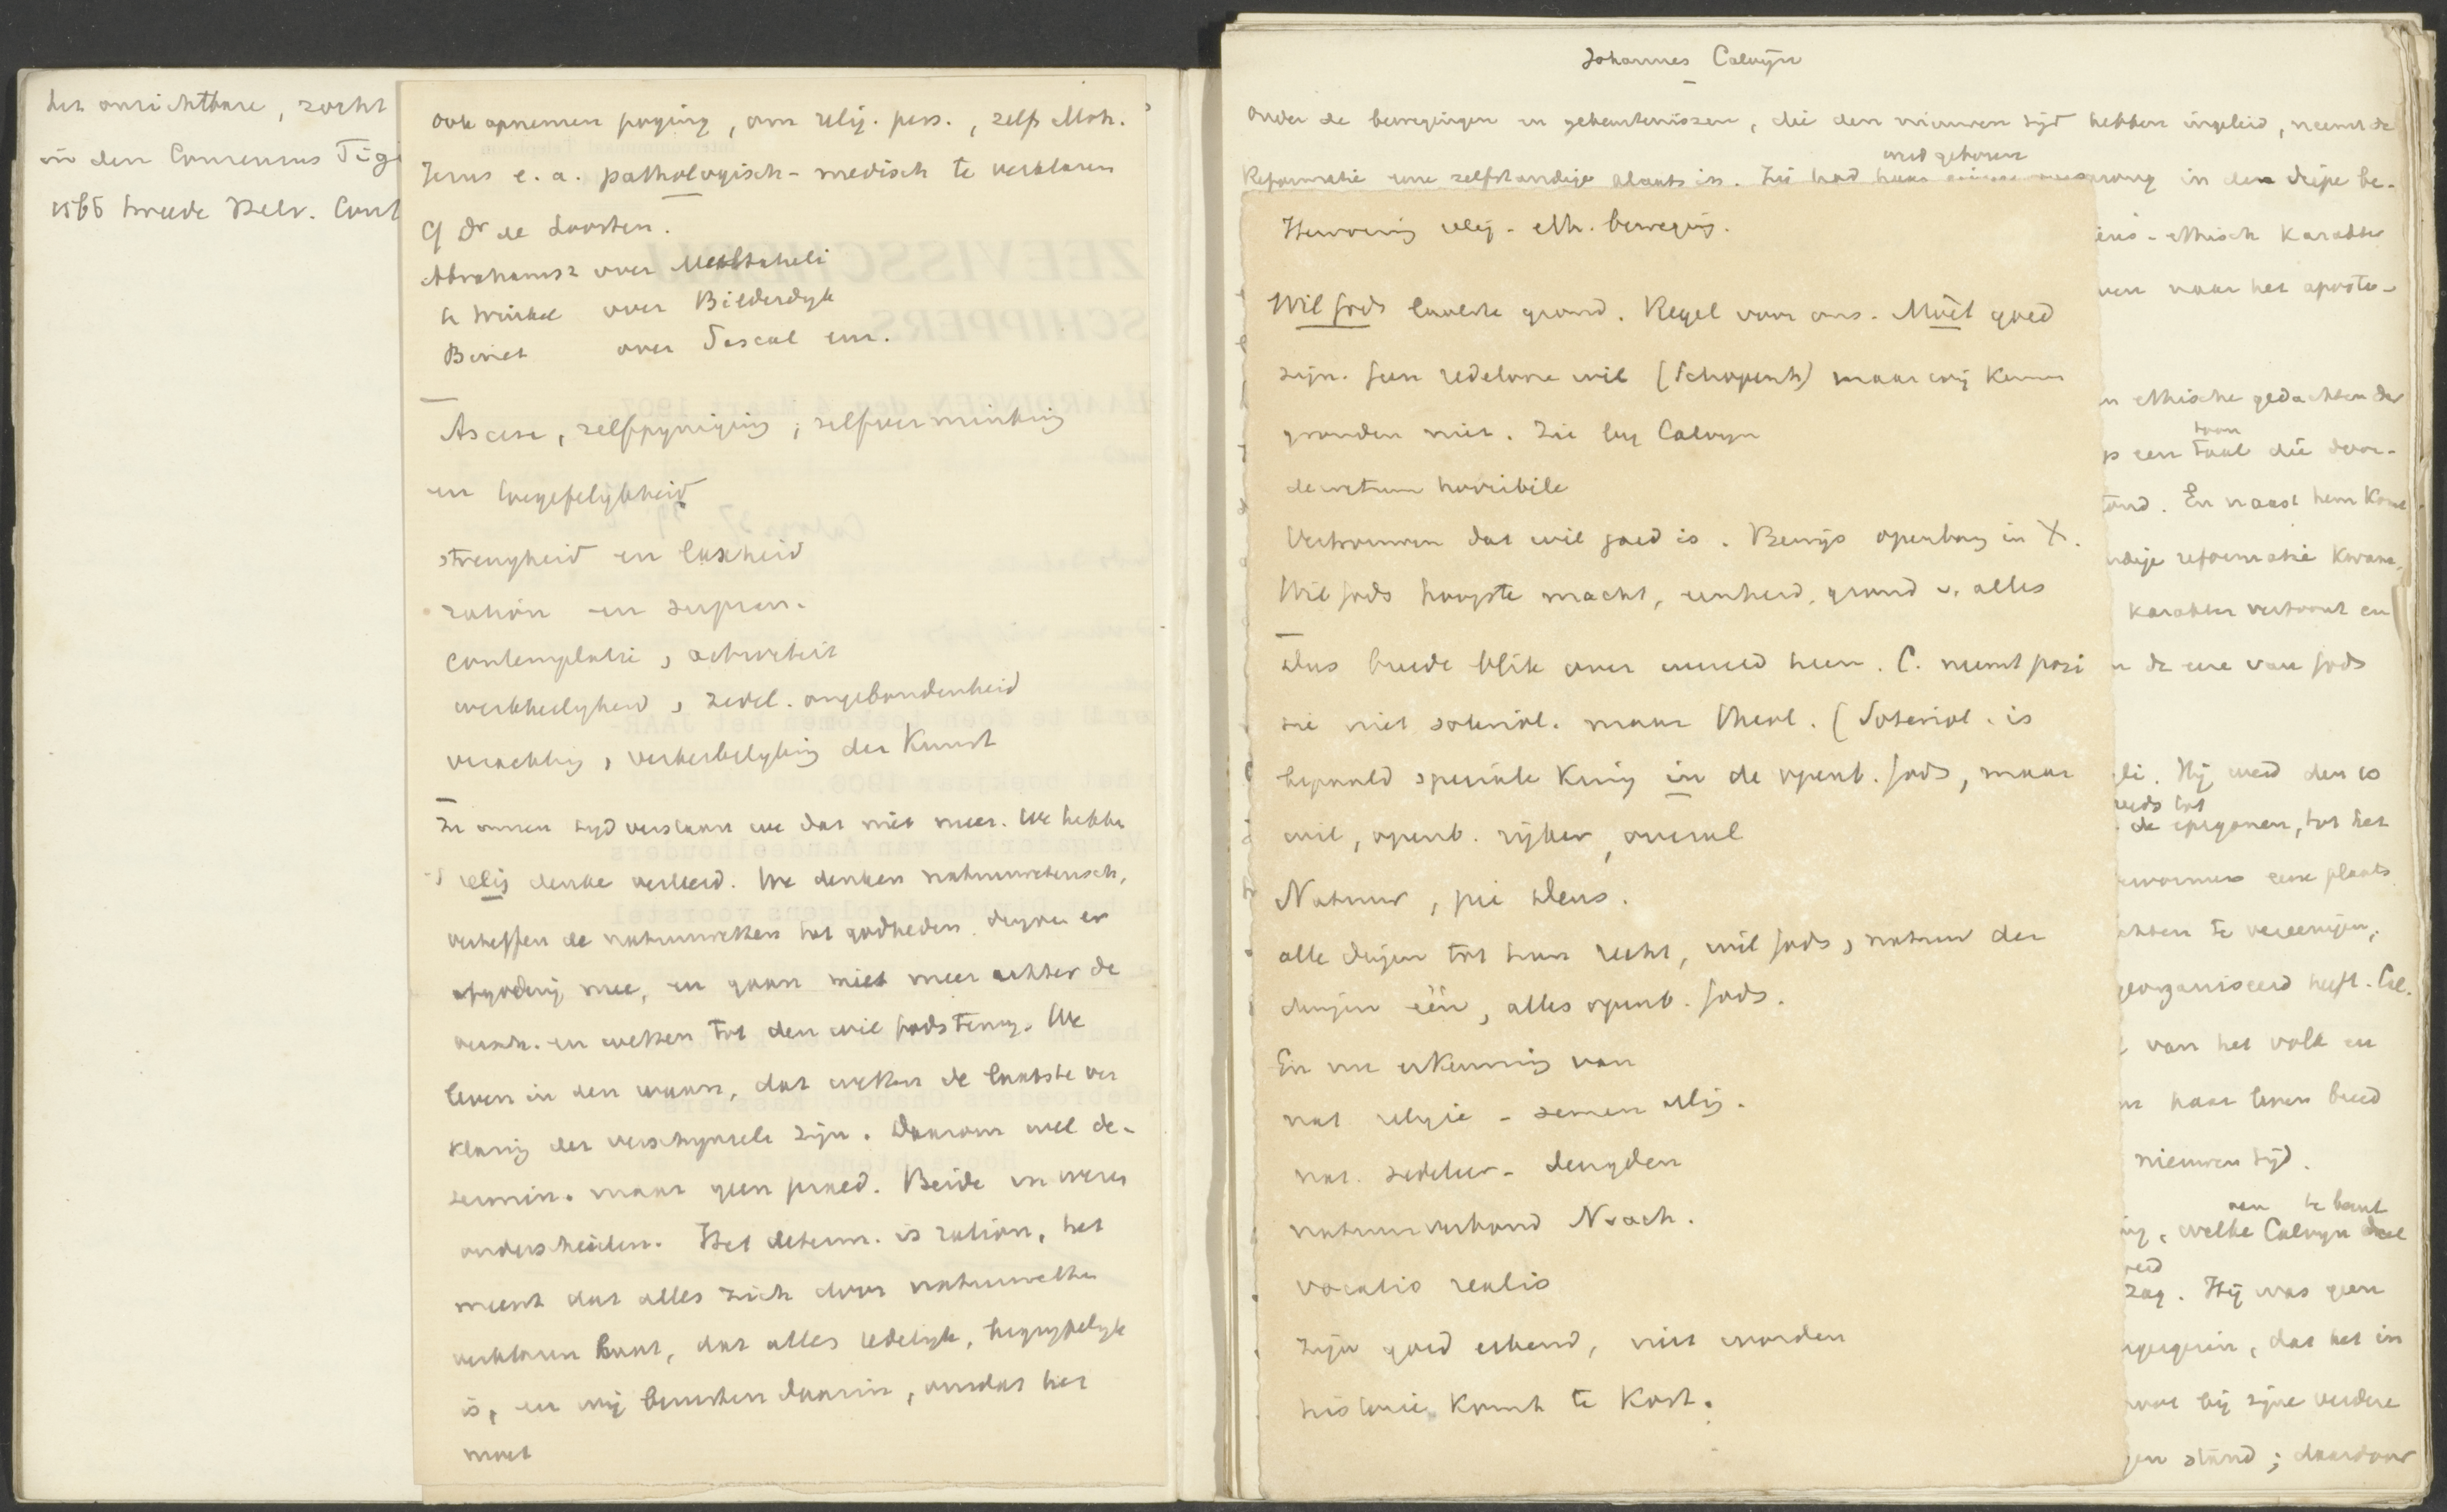 het onzichtbare, zocht
in den Consensus Tig
1566 tweede Helv. Conf
ook opnemen poging, om relig. pers., zelfs Moh.
Jezus e.a. pathologisch-medisch te verklaren
Cf Dr de Loosten.
Abrahamsz over Multatuli
te Winkel over Bilderdyk
Binet over Pascal enz.
Ascese, zelfpyniging, zelfverminking
en toegefelykheid
strengheid en laxheid
ration en supran.
contemplatie, activiteit
werkheiligheid, zedel. ongebondenheid
verachting, verheerlyking der Kunst
In onzen tyd verstaan we dat niet meer. We hebben
relig denken verleerd. We denken natuurwetensch,
verheffen de natuurwetten tot godheden. dryven er
afgodery mee, en gaan niet meer achter de
versch. en wetten tot den wil Gods terug. We
leven in den waan, dat wetten de laatste ver
klaring der verschynsels zijn. Daarom wel de-
termin. maar geen praed. Beide in wezen
onderscheiden. Het determ. is ration, het
meent dat alles zich door natuurwetten
verklaren laat, dat alles redelyk, begrypelyk
is, en wij berusten daarin, omdat het
moet
Johannes Calvijn
Onder de bewegingen en gebeurtenissen, die den nieuwen tijd hebben ingeleid, neemt de
werd geboren
Reformatie eene zelfstandige plaats in. Zij had haar oorsprong in den diepe be-
Hervorming relig-eth. beweging.
Wil Gods laatste grond. Regel voor ons. Moet goed
zijn. Geen redelooze wil (Schopenh) maar wij kennen
gronden niet. Zie by Calvyn
decretum horribile
Vertrouwen dat wil goed is. Bewijs openbarg in X.
Wil Gods hoogste macht, eenheid, grond v. alles
Dus breede blik over wereld heen. C. neemt posi
tie niet soteriol. maar theol. (Soteriol. is
bepaald speciale kring in de openb. Gods, maar
wil, openb. rijker, overal
Natuur, pie Deus.
alle dingen tot hun recht, wil Gods, natuur der
dingen één, alles openb. Gods.
En nu erkenning van
nat religie - semen relig.
nat. zedeleer - deugden
natuurverbond Noach.
vocatio realis
zijn goed erkend, niet worden
historie komt te kort.
ieus-ethisch karakter
ven naar het aposto-
n ethische gedachten der
toon
ps een taal die door-
tond. En naast hem kom
ndige reformatie kwam,
karakter vertoont en
n de eere van Gods
li. Hij werd den 10
reeds tot
de epigonen, tot het
eene plaats
te vereenigen,
georganiseerd heeft. Cal.
van het volk en
haar leven breed
nieuwen tijd.
te bent
ng, welke Calvyn deel
zag. Hij was geen
, dat het in
bij zijne verdere
gen stand; daardoor